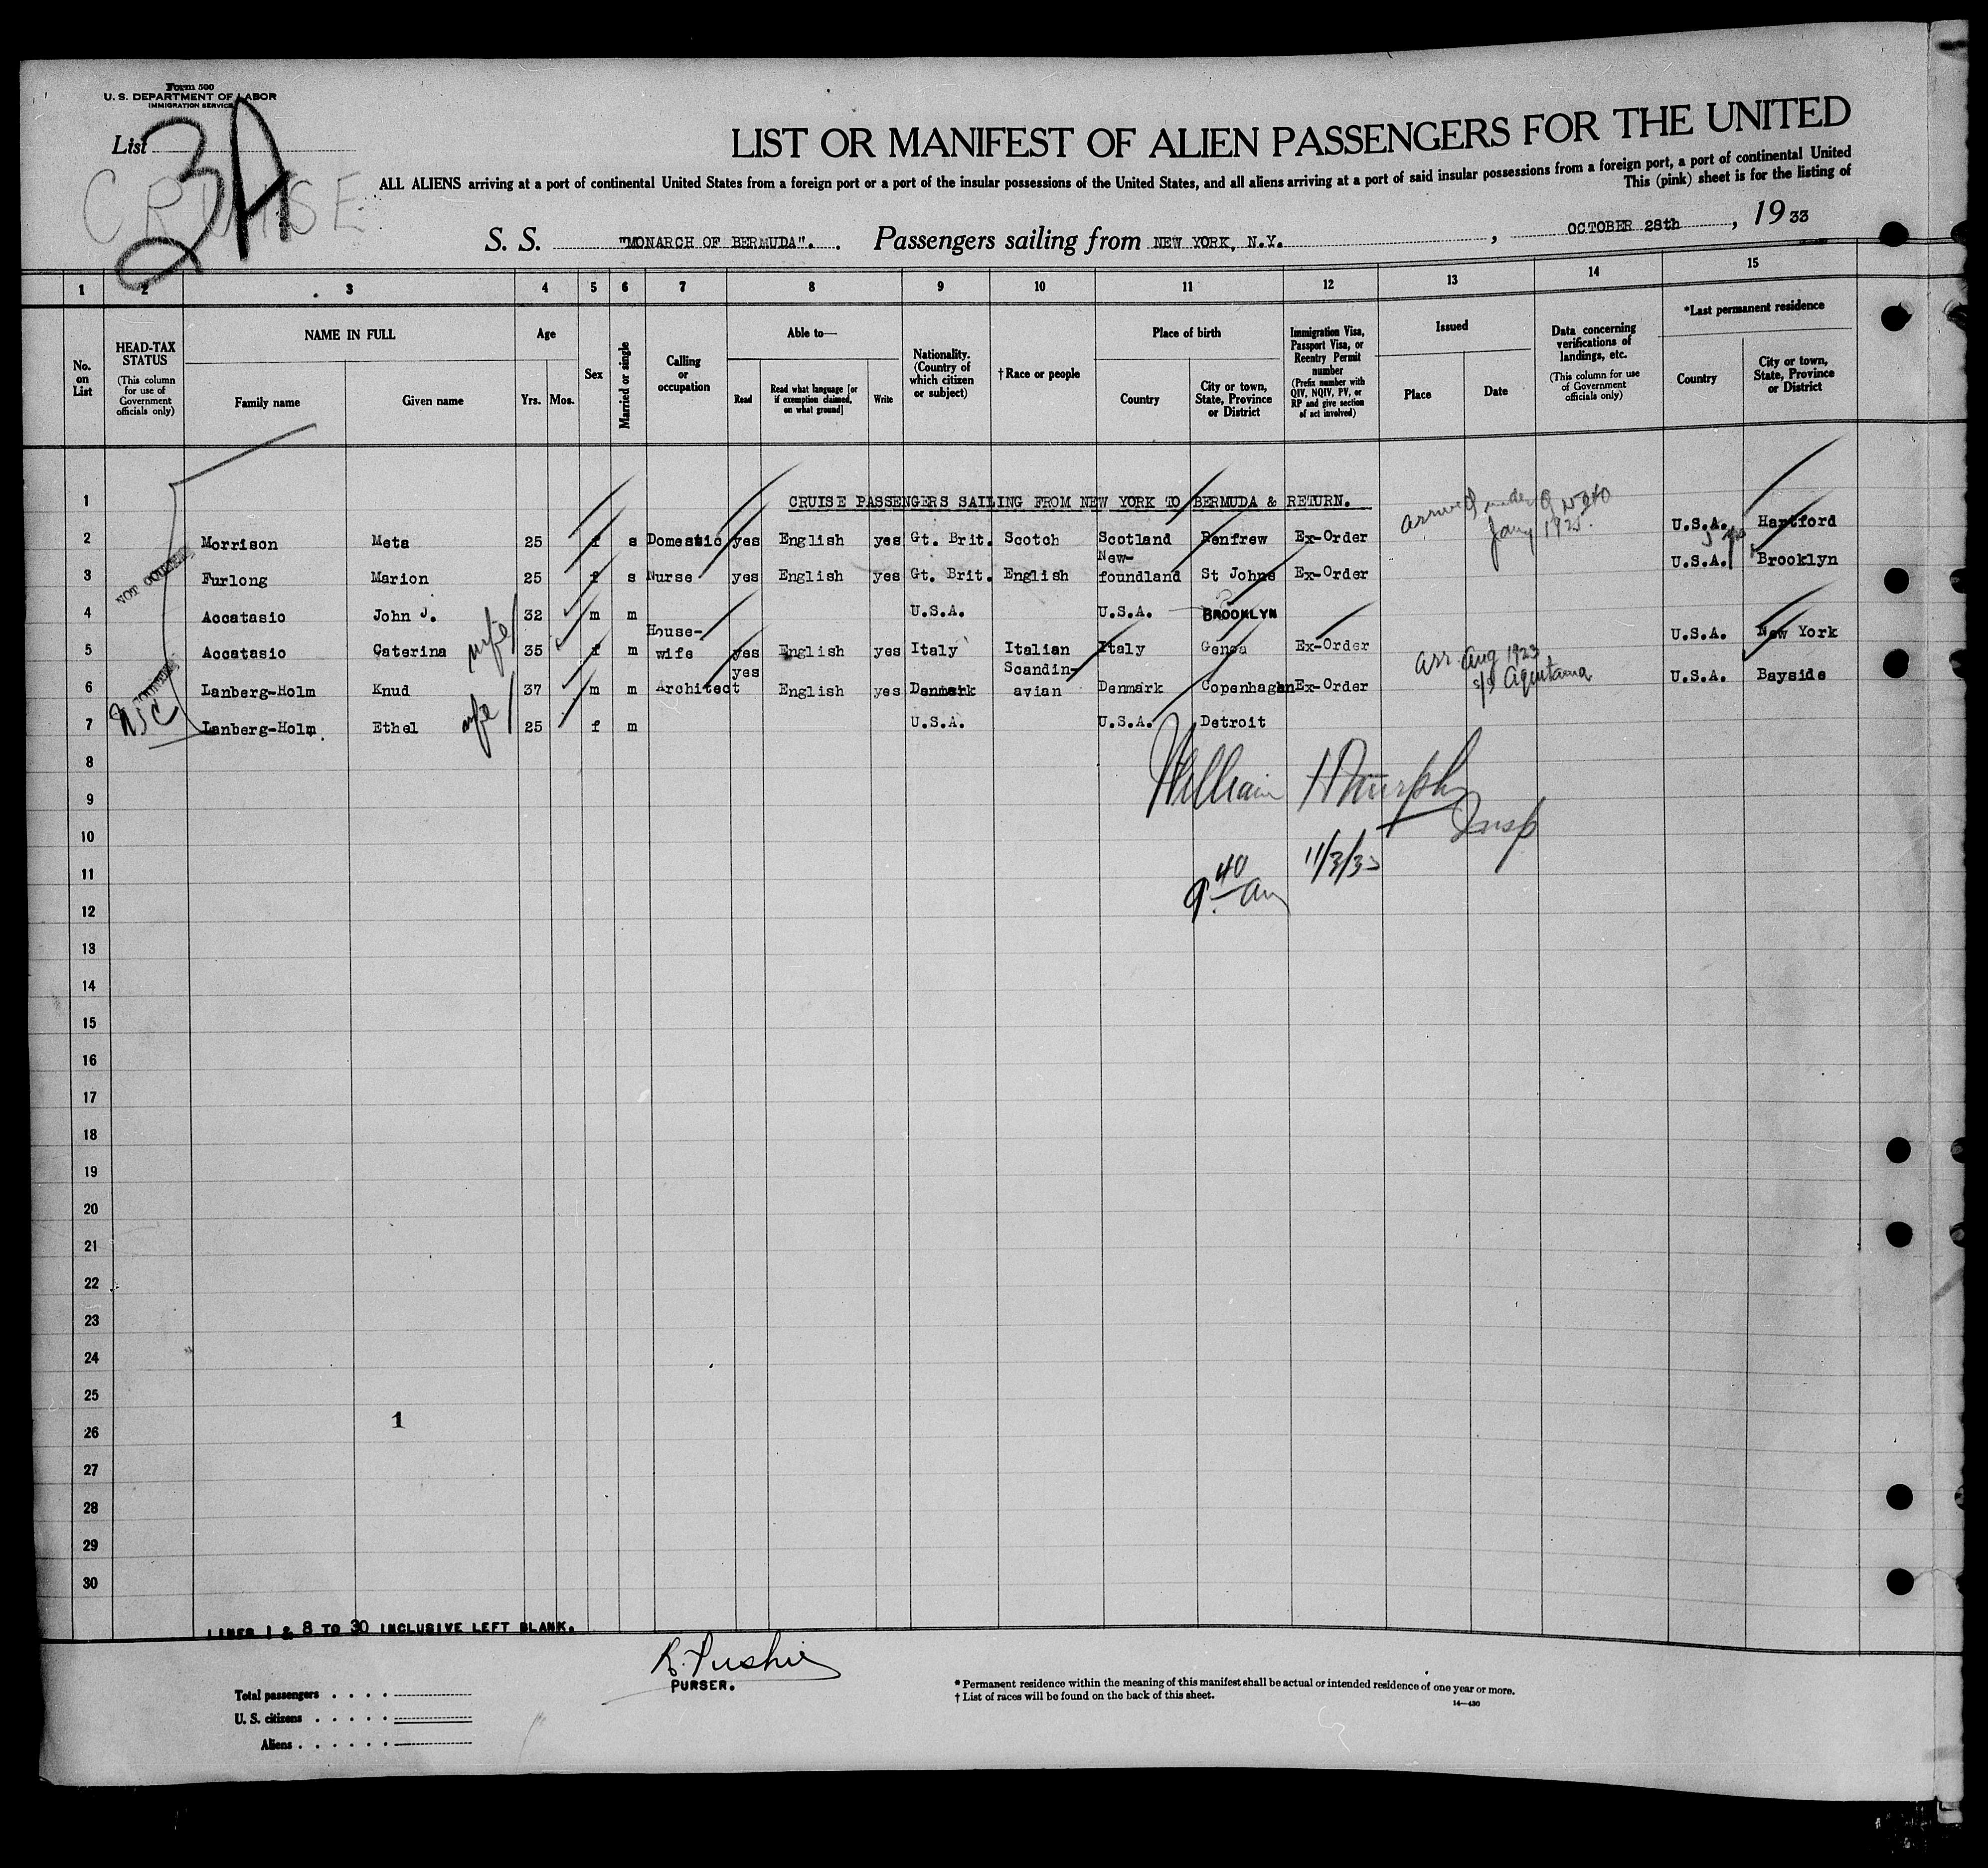 Form 500
U. S. DEPARTMENT OF LABOR
IMMIGRATION SERVICE
List 3A
CRUISE
LIST OR MANIFEST OF ALIEN PASSENGERS FOR THE UNITED
ALL ALIENS arriving at a port of continental United States from a foreign port or a port of the insular possessions of the United States, and all aliens arriving at a port of said insular possessions from a foreign port, a port of continental United
This (pink) sheet is for the listing of
S. S. "MONARCH OF BERMUDA". Passengers sailing from NEW YORK, N.Y. , OCTOBER 28th , 1933
1 2 3 4 5 6 7 8 9 10 11 12 13 14 15
No. on List
HEAD-TAX STATUS (This column for use of Government officials only)
NAME IN FULL Family name Given name
Age Yrs. Mos.
Sex
Married or single
Calling or occupation
Able to— Read Read what language [or if exemption claimed, on what ground] Write
Nationality. (Country of which citizen or subject)
†Race or people
Place of birth Country City or town, State, Province or District
Immigration Visa, Passport Visa, or Reentry Permit number (Prefix number with QIV, NQIV, PV, or RP and give section of act involved)
Issued Place Date
Data concerning verifications of landings, etc. (This column for use of Government officials only)
*Last permanent residence Country City or town, State, Province or District
1 CRUISE PASSENGERS SAILING FROM NEW YORK TO BERMUDA & RETURN.
2 Morrison Meta 25 f s Domestic yes English yes Gt. Brit. Scotch Scotland Renfrew Ex-Order arrived under Jany 1925. U.S.A. Hartford
3 Furlong Marion 25 f s Nurse yes English yes Gt. Brit. English New-foundland St Johns Ex-Order U.S.A. Brooklyn
4 Accatasio John J. 32 m m U.S.A. U.S.A. BROOKLYN
5 Accatasio Caterina wife 35 f m House-wife yes English yes Italy Italian Italy Genoa Ex-Order U.S.A. New York
6 Lanberg-Holm Knud 37 m m Architect yes English yes Denmark Scandin-avian Denmark Copenhagen Ex-Order arr. Aug 1923 s/s Aquitania U.S.A. Bayside
7 Lanberg-Holm Ethel wife 25 f m U.S.A. U.S.A. Detroit
NOT
USC
8
William H Murphy
9
Insp
10
11 11/3/33
9 40 am
12
13
14
15
16
17
18
19
20
21
22
23
24
25
1
26
27
28
29
30
LINES 1 & 8 TO 30 INCLUSIVE LEFT BLANK.
PURSER.
Total passengers
U. S. citizens
Aliens
* Permanent residence within the meaning of this manifest shall be actual or intended residence of one year or more.
† List of races will be found on the back of this sheet.
14—430